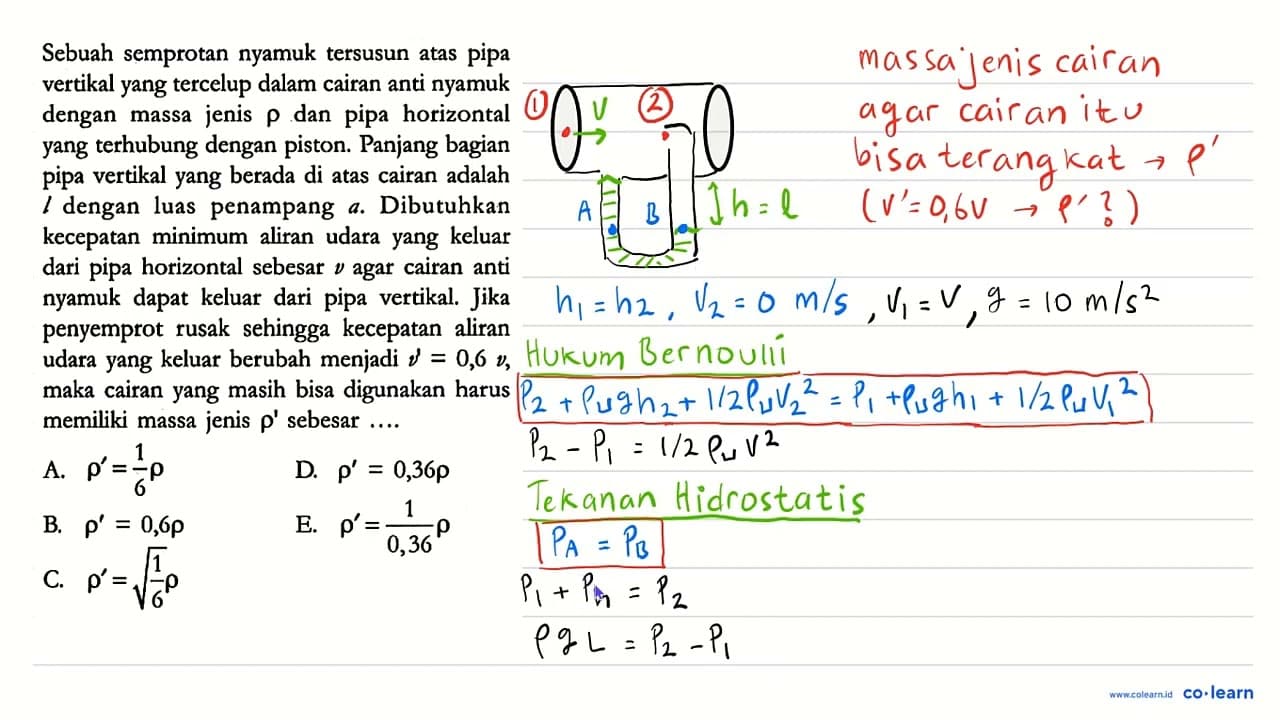 Sebuah semprotan nyamuk tersusun atas pipa
vertikal yang tercelup dalam cairan anti nyamuk
dengan massa jenis ρ dan pipa horizontal
yang terhubung dengan piston. Panjang bagian
pipa vertikal yang berada di atas cairan adalah
l dengan luas penampang a. Dibutuhkan
kecepatan minimum aliran udara yang keluar
dari pipa horizontal sebesar v agar cairan anti
nyamuk dapat keluar dari pipa vertikal. Jika
penyemprot rusak sehingga kecepatan aliran
udara yang keluar berubah menjadi v' = 0,6 v,
maka cairan yang masih bisa digunakan harus
memiliki massa jenis ρ' sebesar ....
A. ρ' = 1/6 ρ
B. ρ' = 0,6ρ
C. ρ' = √(1/6) ρ
D. ρ' = 0,36ρ
E. ρ' = 1/0,36 ρ
① V ②
A B h = l
massa jenis cairan
agar cairan itu
bisa terangkat → ρ'
(V' = 0,6V → ρ' ?)
h₁ = h₂, V₂ = 0 m/s, V₁ = V, g = 10 m/s²
Hukum Bernoulii
P₂ + ρᵤgh₂ + 1/2 ρᵤV₂² = P₁ + ρᵤgh₁ + 1/2 ρᵤV₁²
P₂ - P₁ = 1/2 ρᵤ V²
Tekanan Hidrostatis
P_A = P_B
P₁ + Pₕ = P₂
ρ g L = P₂ - P₁
www.colearn.id co·learn